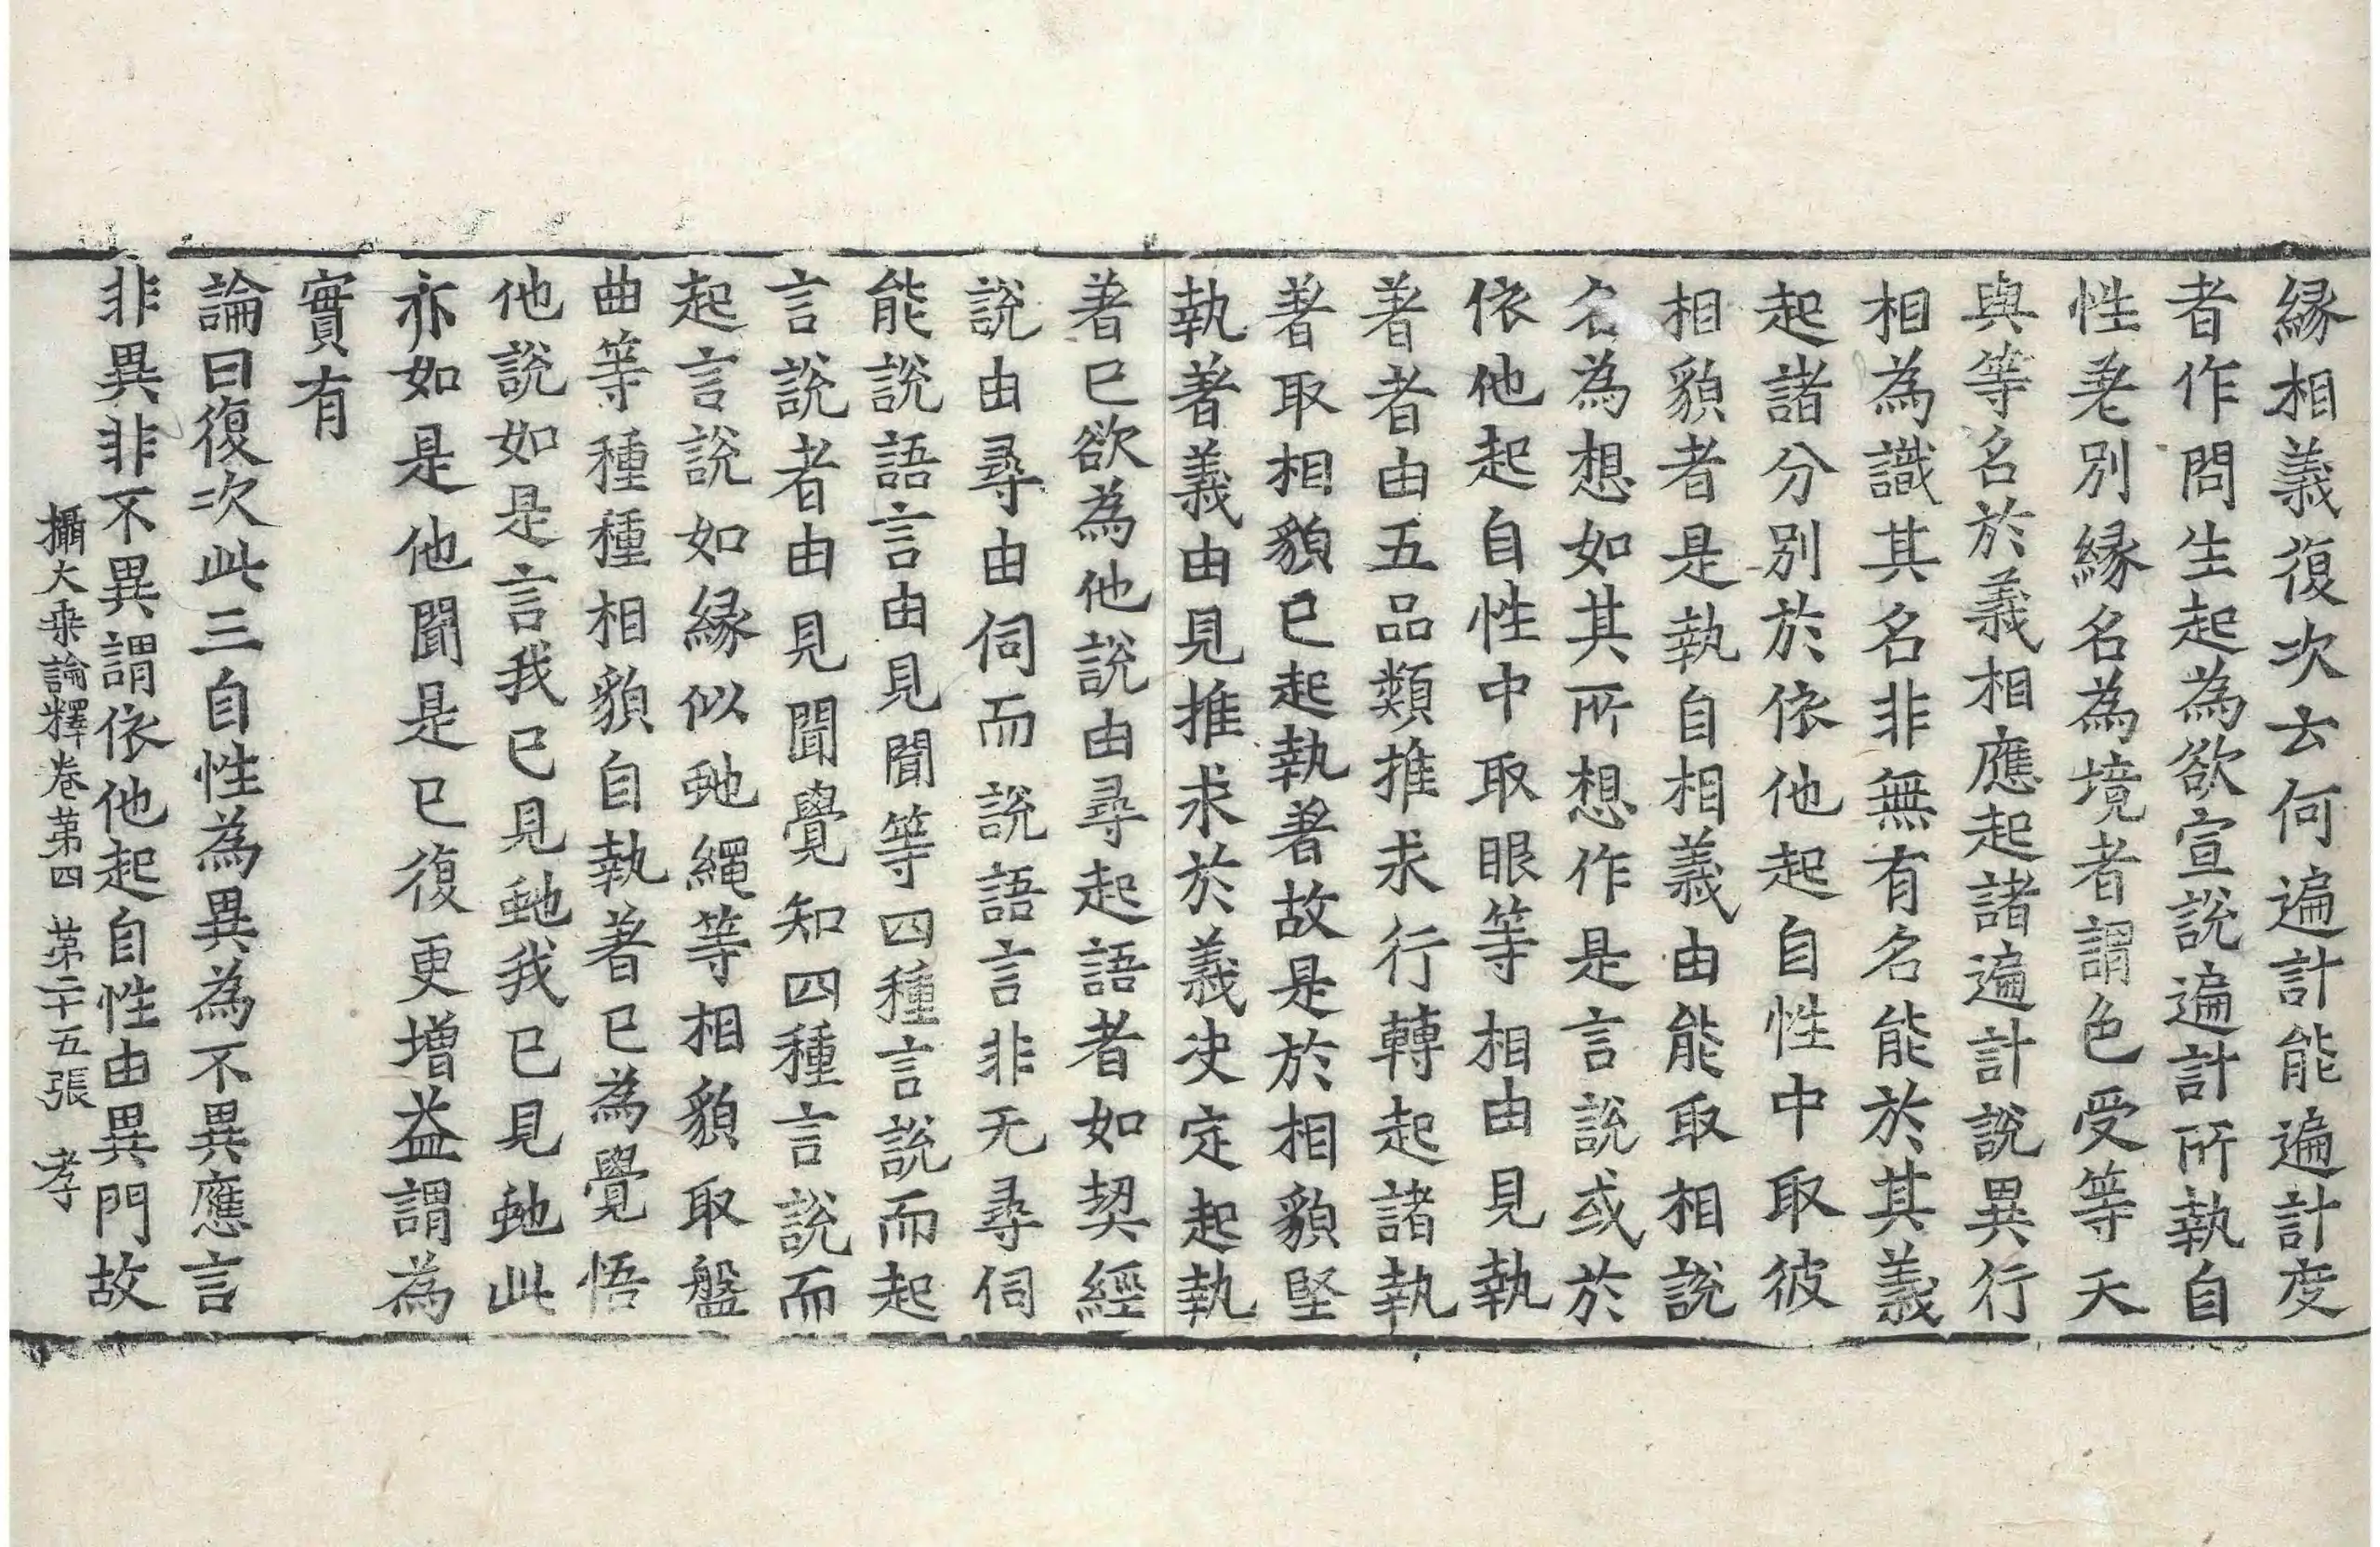 縁相義復次云何遍計能遍計度
者作問生起為欲宣說遍計所執自
性差別縁名為境者謂色受等天
與等名於義相應起諸遍計說異行
相為識其名非無有名能於其義
起諸分別於依他起自性中取彼
相貌者是執自相義由能取相說
名為想如其所想作是言說或於
依他起自性中取眼等相由見執
著者由五品類推求行轉起諸執
著取相貌已起執著故是於相貌堅
執著義由見推求於義決定起執
著已欲為他說由尋起語者如契經
說由尋由伺而說語言非无尋伺
能說語言由見聞等四種言說而起
言說者由見聞覺知四種言說而
起言說如縁似虵繩等相貌取盤
曲等種種相貌自執著已為覺悟
他說如是言我已見虵我已見虵此
亦如是他聞是已復更增益謂為
實有
論曰復次此三自性為異為不異應言
非異非不異謂依他起自性由異門故
攝大乘論釋卷第四 第二十五張 孝